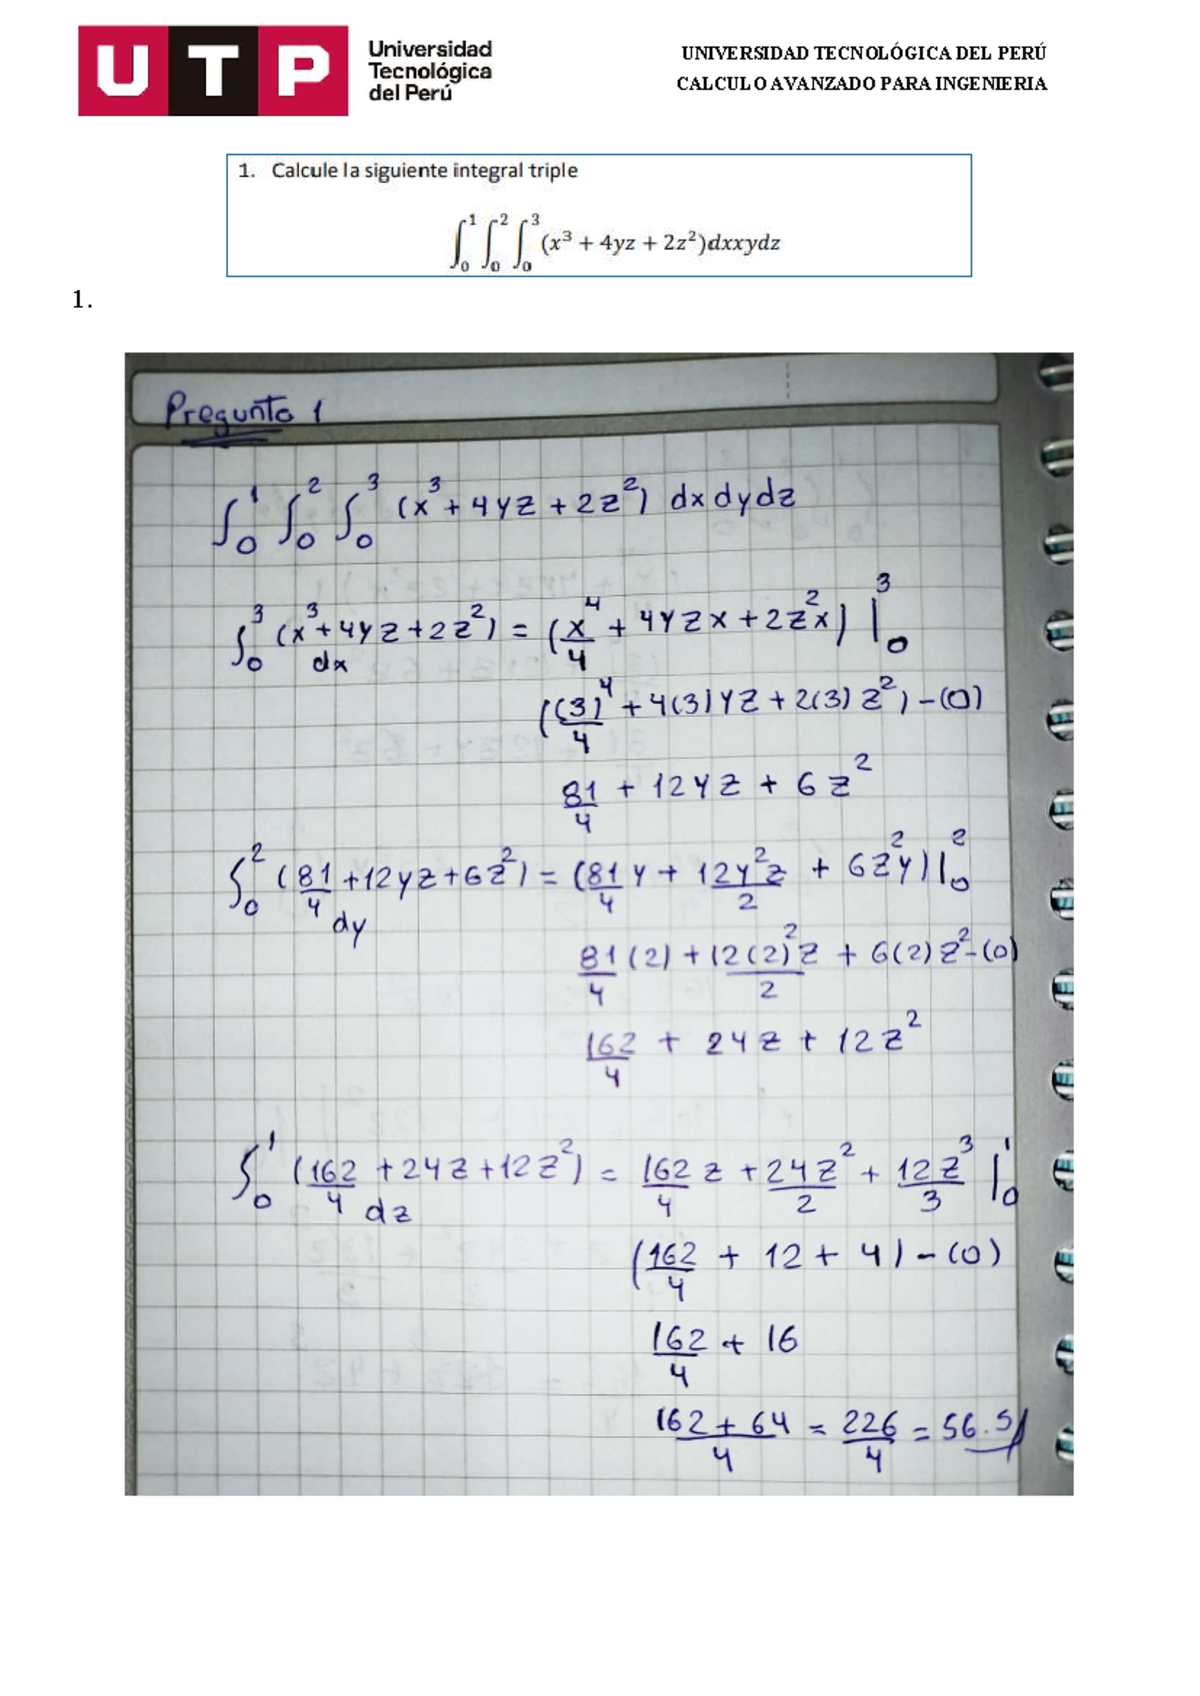 UTP
Universidad
Tecnológica
del Perú
UNIVERSIDAD TECNOLÓGICA DEL PERÚ
CALCULO AVANZADO PARA INGENIERIA
1. Calcule la siguiente integral triple
∫₀¹ ∫₀² ∫₀³ (x³ + 4yz + 2z²)dxxydz
1.
Pregunta 1
∫₀¹ ∫₀² ∫₀³ (x³ + 4yz + 2z²) dxdydz
∫₀³ (x³+4yz+2z²) dx = (x⁴/4 + 4yzx + 2z²x) |₀³
((3)⁴/4 + 4(3)yz + 2(3)z²) - (0)
81/4 + 12yz + 6z²
∫₀² (81/4 + 12yz + 6z²) dy = (81/4 y + 12y²z/2 + 6z²y) |₀²
81/4 (2) + 12(2)²z/2 + 6(2)z² - (0)
162/4 + 24z + 12z²
∫₀¹ (162/4 + 24z + 12z²) dz = 162/4 z + 24z²/2 + 12z³/3 |₀¹
(162/4 + 12 + 4) - (0)
162/4 + 16
162 + 64/4 = 226/4 = 56.5